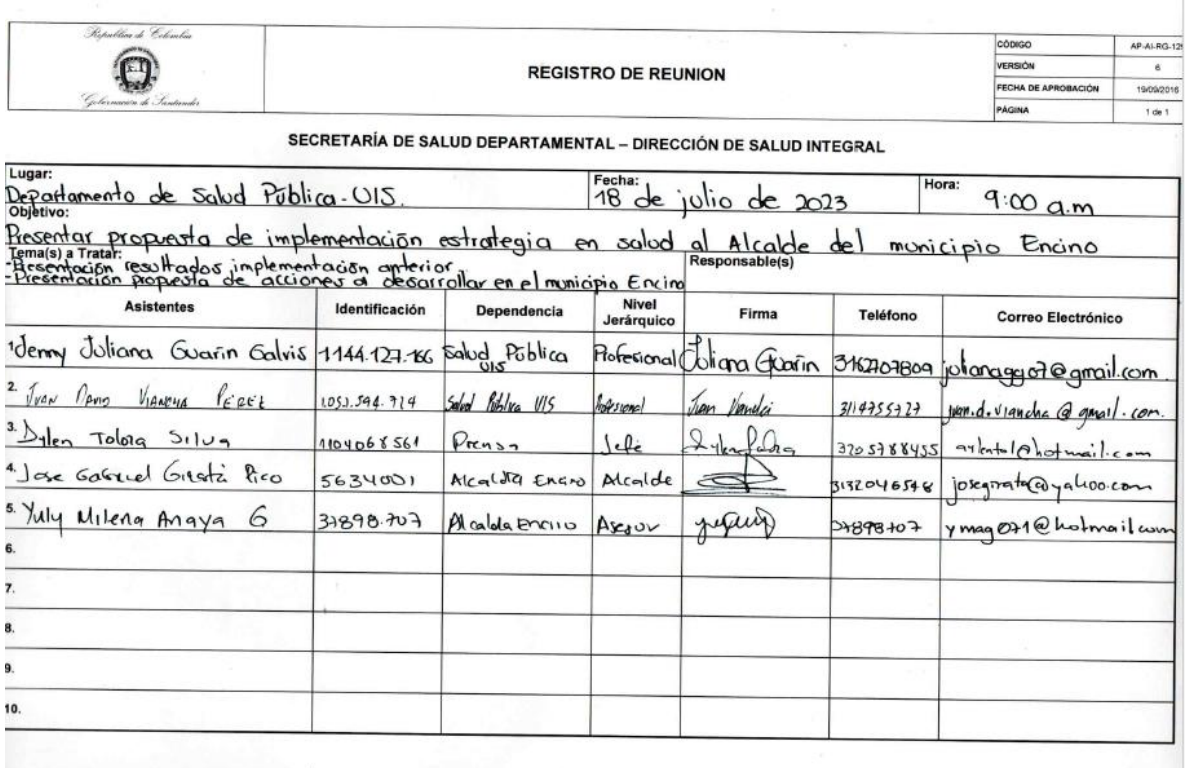 República de Colombia
Gobernación de Santander
REGISTRO DE REUNION
CÓDIGO AP-AI-RG-12
VERSIÓN 6
FECHA DE APROBACIÓN 19/09/2016
PÁGINA 1 de 1
SECRETARÍA DE SALUD DEPARTAMENTAL – DIRECCIÓN DE SALUD INTEGRAL
Lugar: Fecha: Hora:
Departamento de Salud Pública-UIS. 18 de julio de 2023 9:00 a.m
Objetivo:
Presentar propuesta de implementación estrategia en salud al Alcalde del municipio Encino
Tema(s) a Tratar: Responsable(s)
-Presentación resultados implementación anterior
-Presentación propuesta de acciones a desarrollar en el municipio Encino
Asistentes Identificación Dependencia Nivel Jerárquico Firma Teléfono Correo Electrónico
1 Jenny Juliana Guarin Galvis 1144.127.166 Salud Pública UIS Profesional Juliana Guarin 3162707809 julianagg07@gmail.com
2. Juan David Viancha Perez 1.052.394.714 Salud Pública UIS Profesional Juan Viancha 3114755727 juan.d.viancha@gmail.com.
3. Dylen Tolora Silva 1104068561 Prensa Jefe 3205788455
4. Jose Gabriel Girata Pico 5634001 Alcaldia Encino Alcalde 3132046548 josegirata@yahoo.com
5. Yuly Milena Anaya G 37898.707 Alcaldia Encino Asesor 37898707 ymag071@hotmail.com
6.
7.
8.
9.
10.